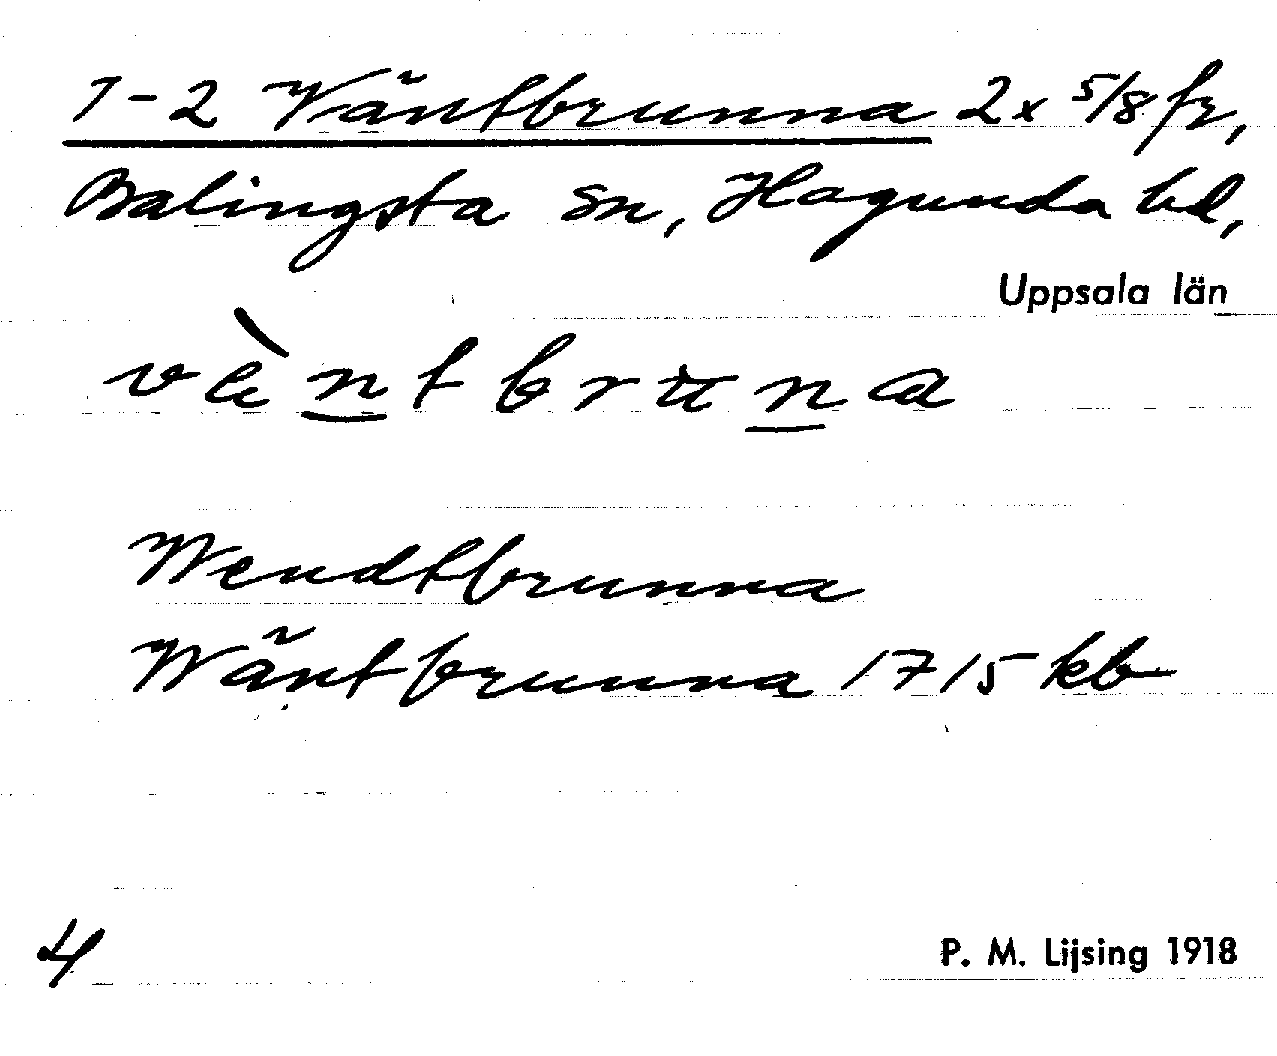 1-2 Väntbrunna 2x 5/8 fr,
Balingsta sn, Hagunda hd,
Uppsala län
vὲntbruna
Wendtbrunna
Wäntbrunna 1715 kb
4
P. M. Lijsing 1918